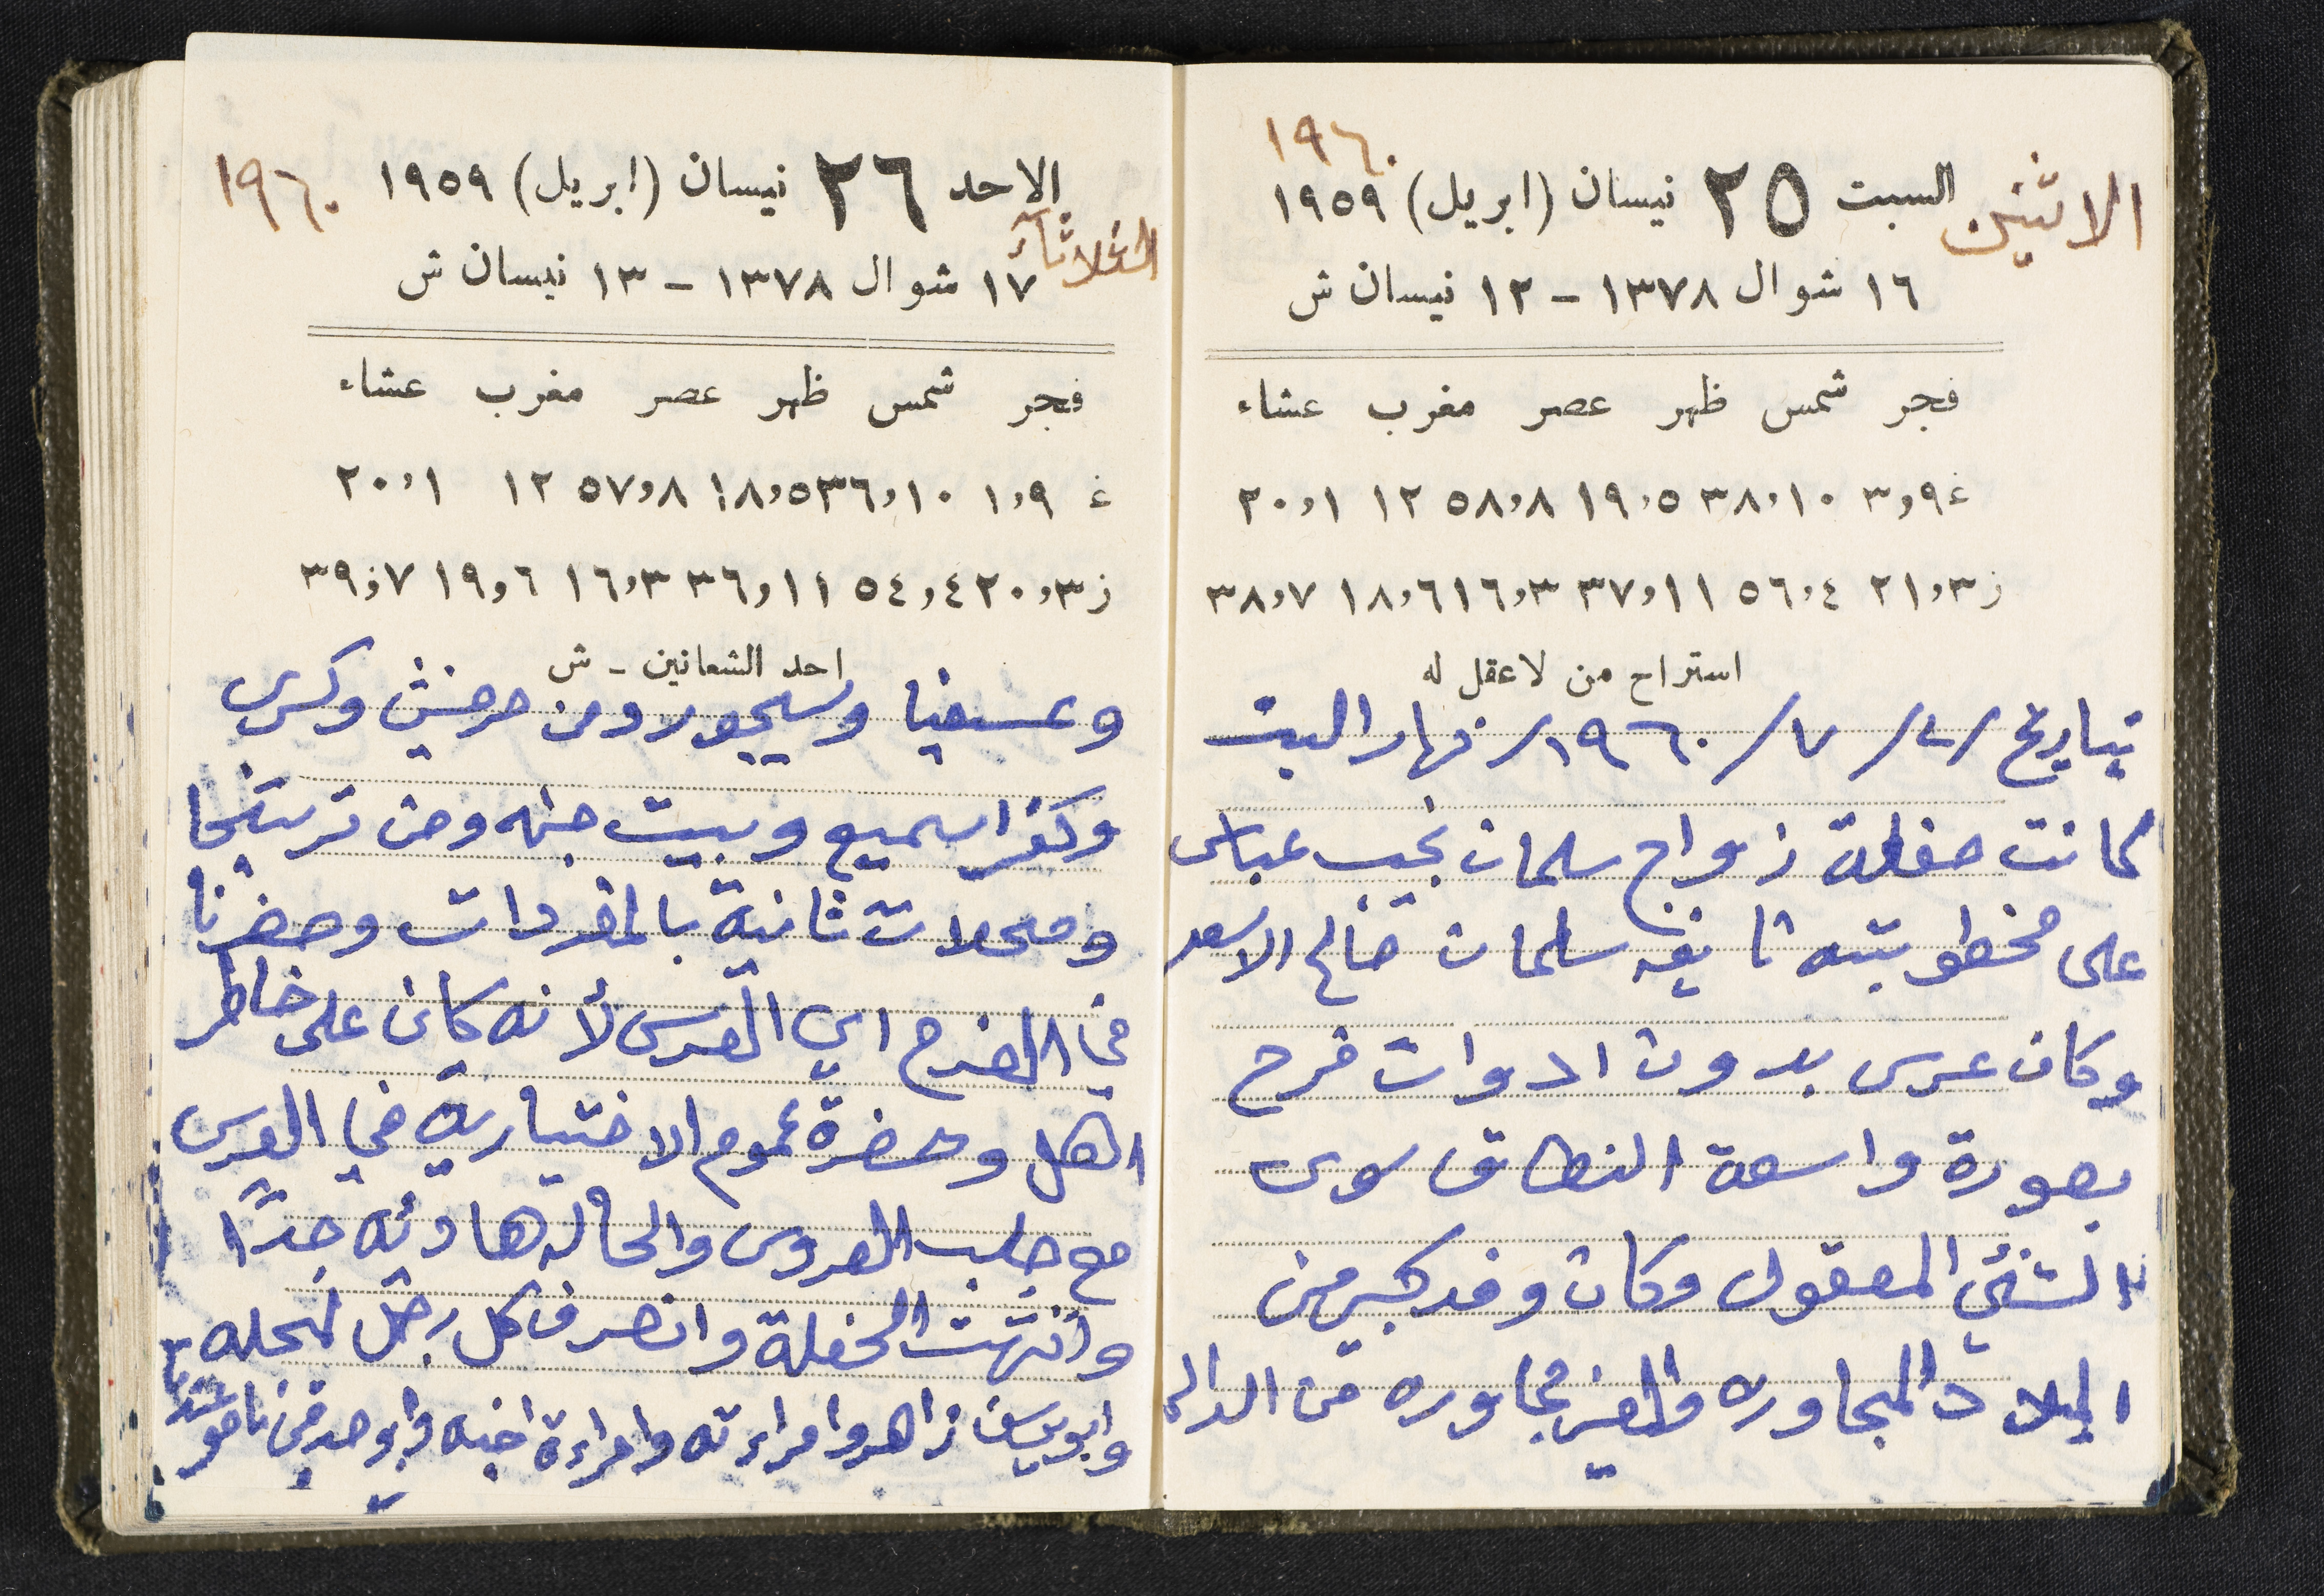 ١٩٦٠
الاثنين السبت ٢٥ نيسان (ابريل) ١٩٥٩
١٦ شوال ١٣٧٨ - ١٢ نيسان ش
فجر شمس ظهر عصر مغرب عشاء
غ ٣,٩ ٣٨,١٠ ١٩,٥ ٥٨,٨ ١٢ ٢٠,١
ز ٢١,٣ ٥٦,٤ ٣٧,١١ ١٦,٣ ١٨,٦ ٣٨,٧
استراح من لا عقل له
بتاريخ / ٧ / ١٩٦٠ / نهار السبت
كانت حفلة زواج سلمان نجيب عباس
على مخطوبته نايفه سلمان صالح الاسعد
وكان عرس بدون ادوات فرح
بصورة واسعة النطاق سوى
الشئي المعقول وكان وفد كبير من
البلاد المجاوره والغير مجاوره من الداليه
الاحد ٢٦ نيسان (ابريل) ١٩٥٩ ١٩٦٠
الثلاثاء
١٧ شوال ١٣٧٨ - ١٣ نيسان ش
فجر شمس ظهر عصر مغرب عشاء
غ ١,٩ ٣٦,١٠ ١٨,٥ ٥٧,٨ ١٢ ٢٠,١
ز ٢٠,٣ ٥٤,٤ ٣٦,١١ ١٦,٣ ١٩,٦ ٣٩,٧
احد الشعانين - ش
وعسفيا وسيجور ومن حرفيش وكسرى
وكفر اسميع وبيت جنه ومن ترشيحا
ومحلات ثانية بالمفردات وحضرنا
في الفرح اي العرس لأنه كان على خاطر
اهل وحضرة عموم الاختياريه في العرس
مع جلب العروس والحاله هادئه جدًا
وانتهت الحفلة وانصرف كل رجل لمحله
وابو يوسف زاهر وامراءته وامراءة اخيه وابو حمد من عندنا